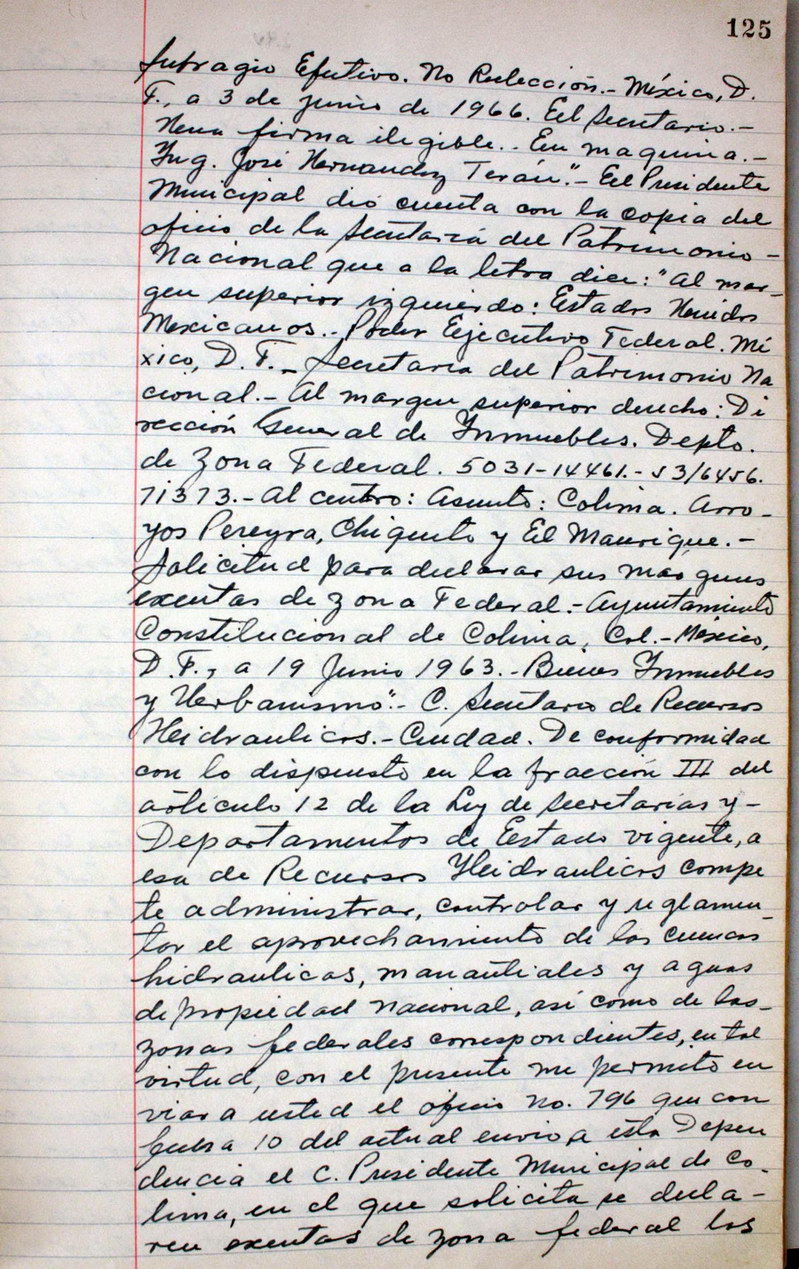 125
Sufragio Efectivo. No Reelección.- México, D.
F., a 3 de junio de 1966. El Secretario.-
Una firma ilegible.. En maquina.-
Ing. José Hernandez Terán".- El Presidente
Municipal dió cuenta con la copia del
oficio de la Secretaría del Patrimonio-
Nacional que a la letra dice: "Al mar-
gen superior izquierdo: Estados Unidos
Mexicanos.- Poder Ejecutivo Federal. Mé
xico, D. F.- Secretaria del Patrimonio Na
cional.- Al margen superior derecho: Di
rección General de Inmuebles. Depto.
de Zona Federal. 5031-14461.-53/6456.
71373.- Al centro: Asunto: Colima. Arro-
yos Pereyra, Chiquito y El Manrique.-
Solicitud para declarar sus márgenes
exentas de zona Federal.- Ayuntamiento
Constitucional de Colima, Col.- México,
D. F., a 19 Junio 1963.- Bienes Inmuebles
y Urbanismo".- C. Secretario de Recursos
Hidraulicos.- Ciudad. De conformidad
con lo dispuesto en la fracción III del
artículo 12 de la Ley de Secretarías y-
Departamentos de Estado vigente, a
esa de Recursos Hidraulicos compe
te administrar, controlar y reglamen-
tar el aprovechamiento de las cuencas
hidraulicas, manantiales y aguas
de propiedad nacional, así como de las-
zonas federales correspondientes, en tal
virtud, con el presente me permito en
viar a usted el oficio no. 796 que con
fecha 10 del actual envio a esta Depen
dencia el C. Presidente Municipal de Co-
lima, en el que solicita se decla-
ren exentas de zona federal los